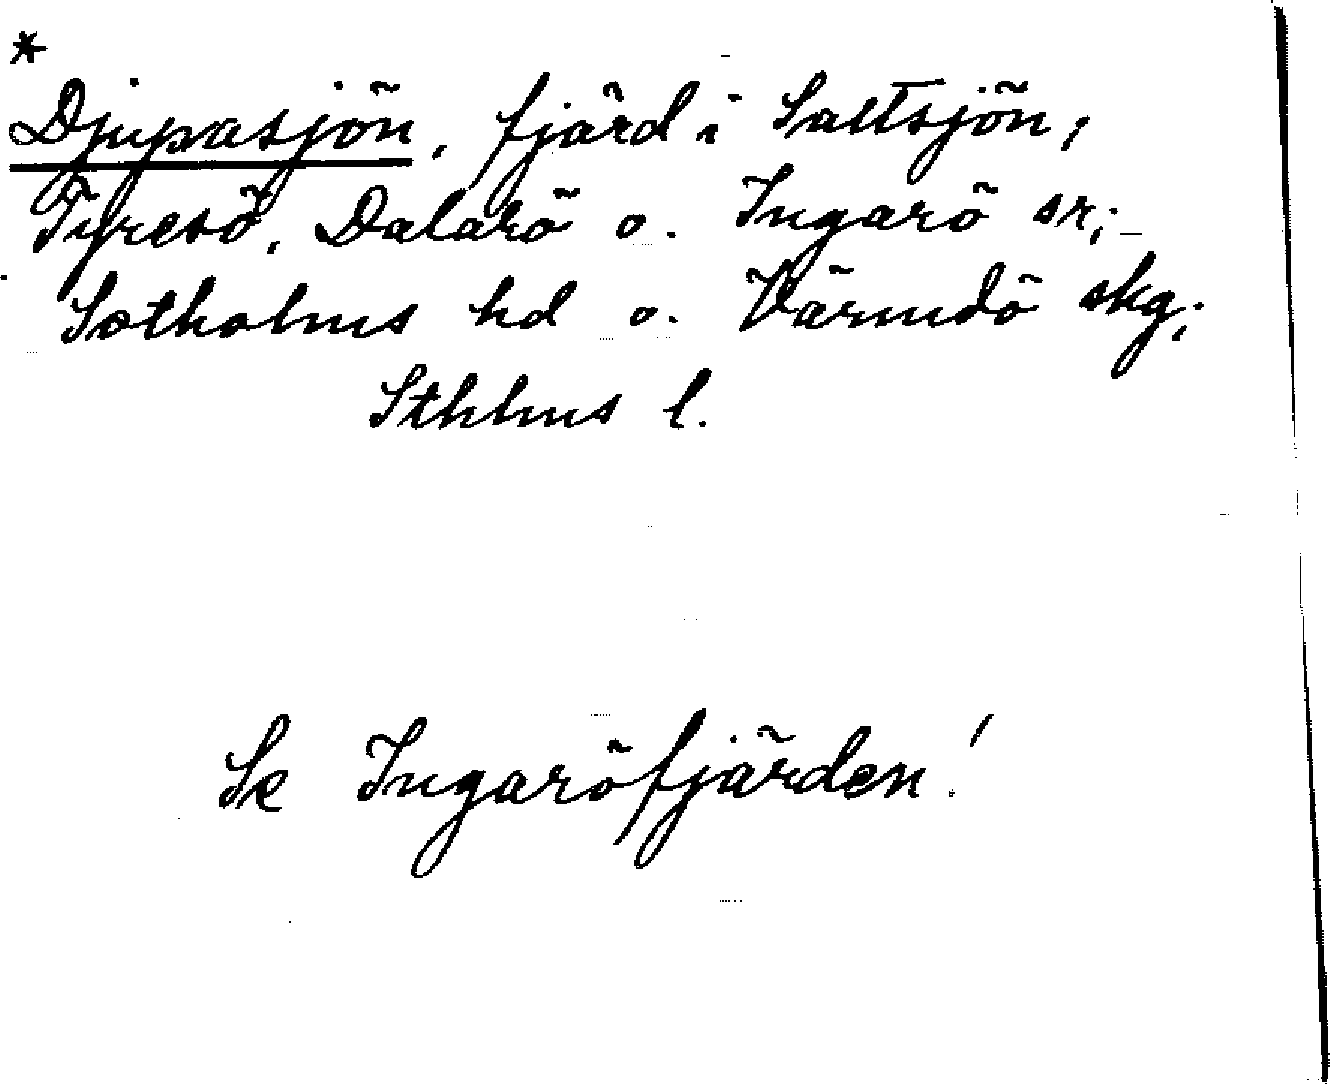 *
Djupasjön, fjärd i Saltsjön,
Tyresö, Dalarö o. Ingarö sr;
Sotholms hd o. Värmdö skg;
Sthlms l.
Se Ingaröfjärden!